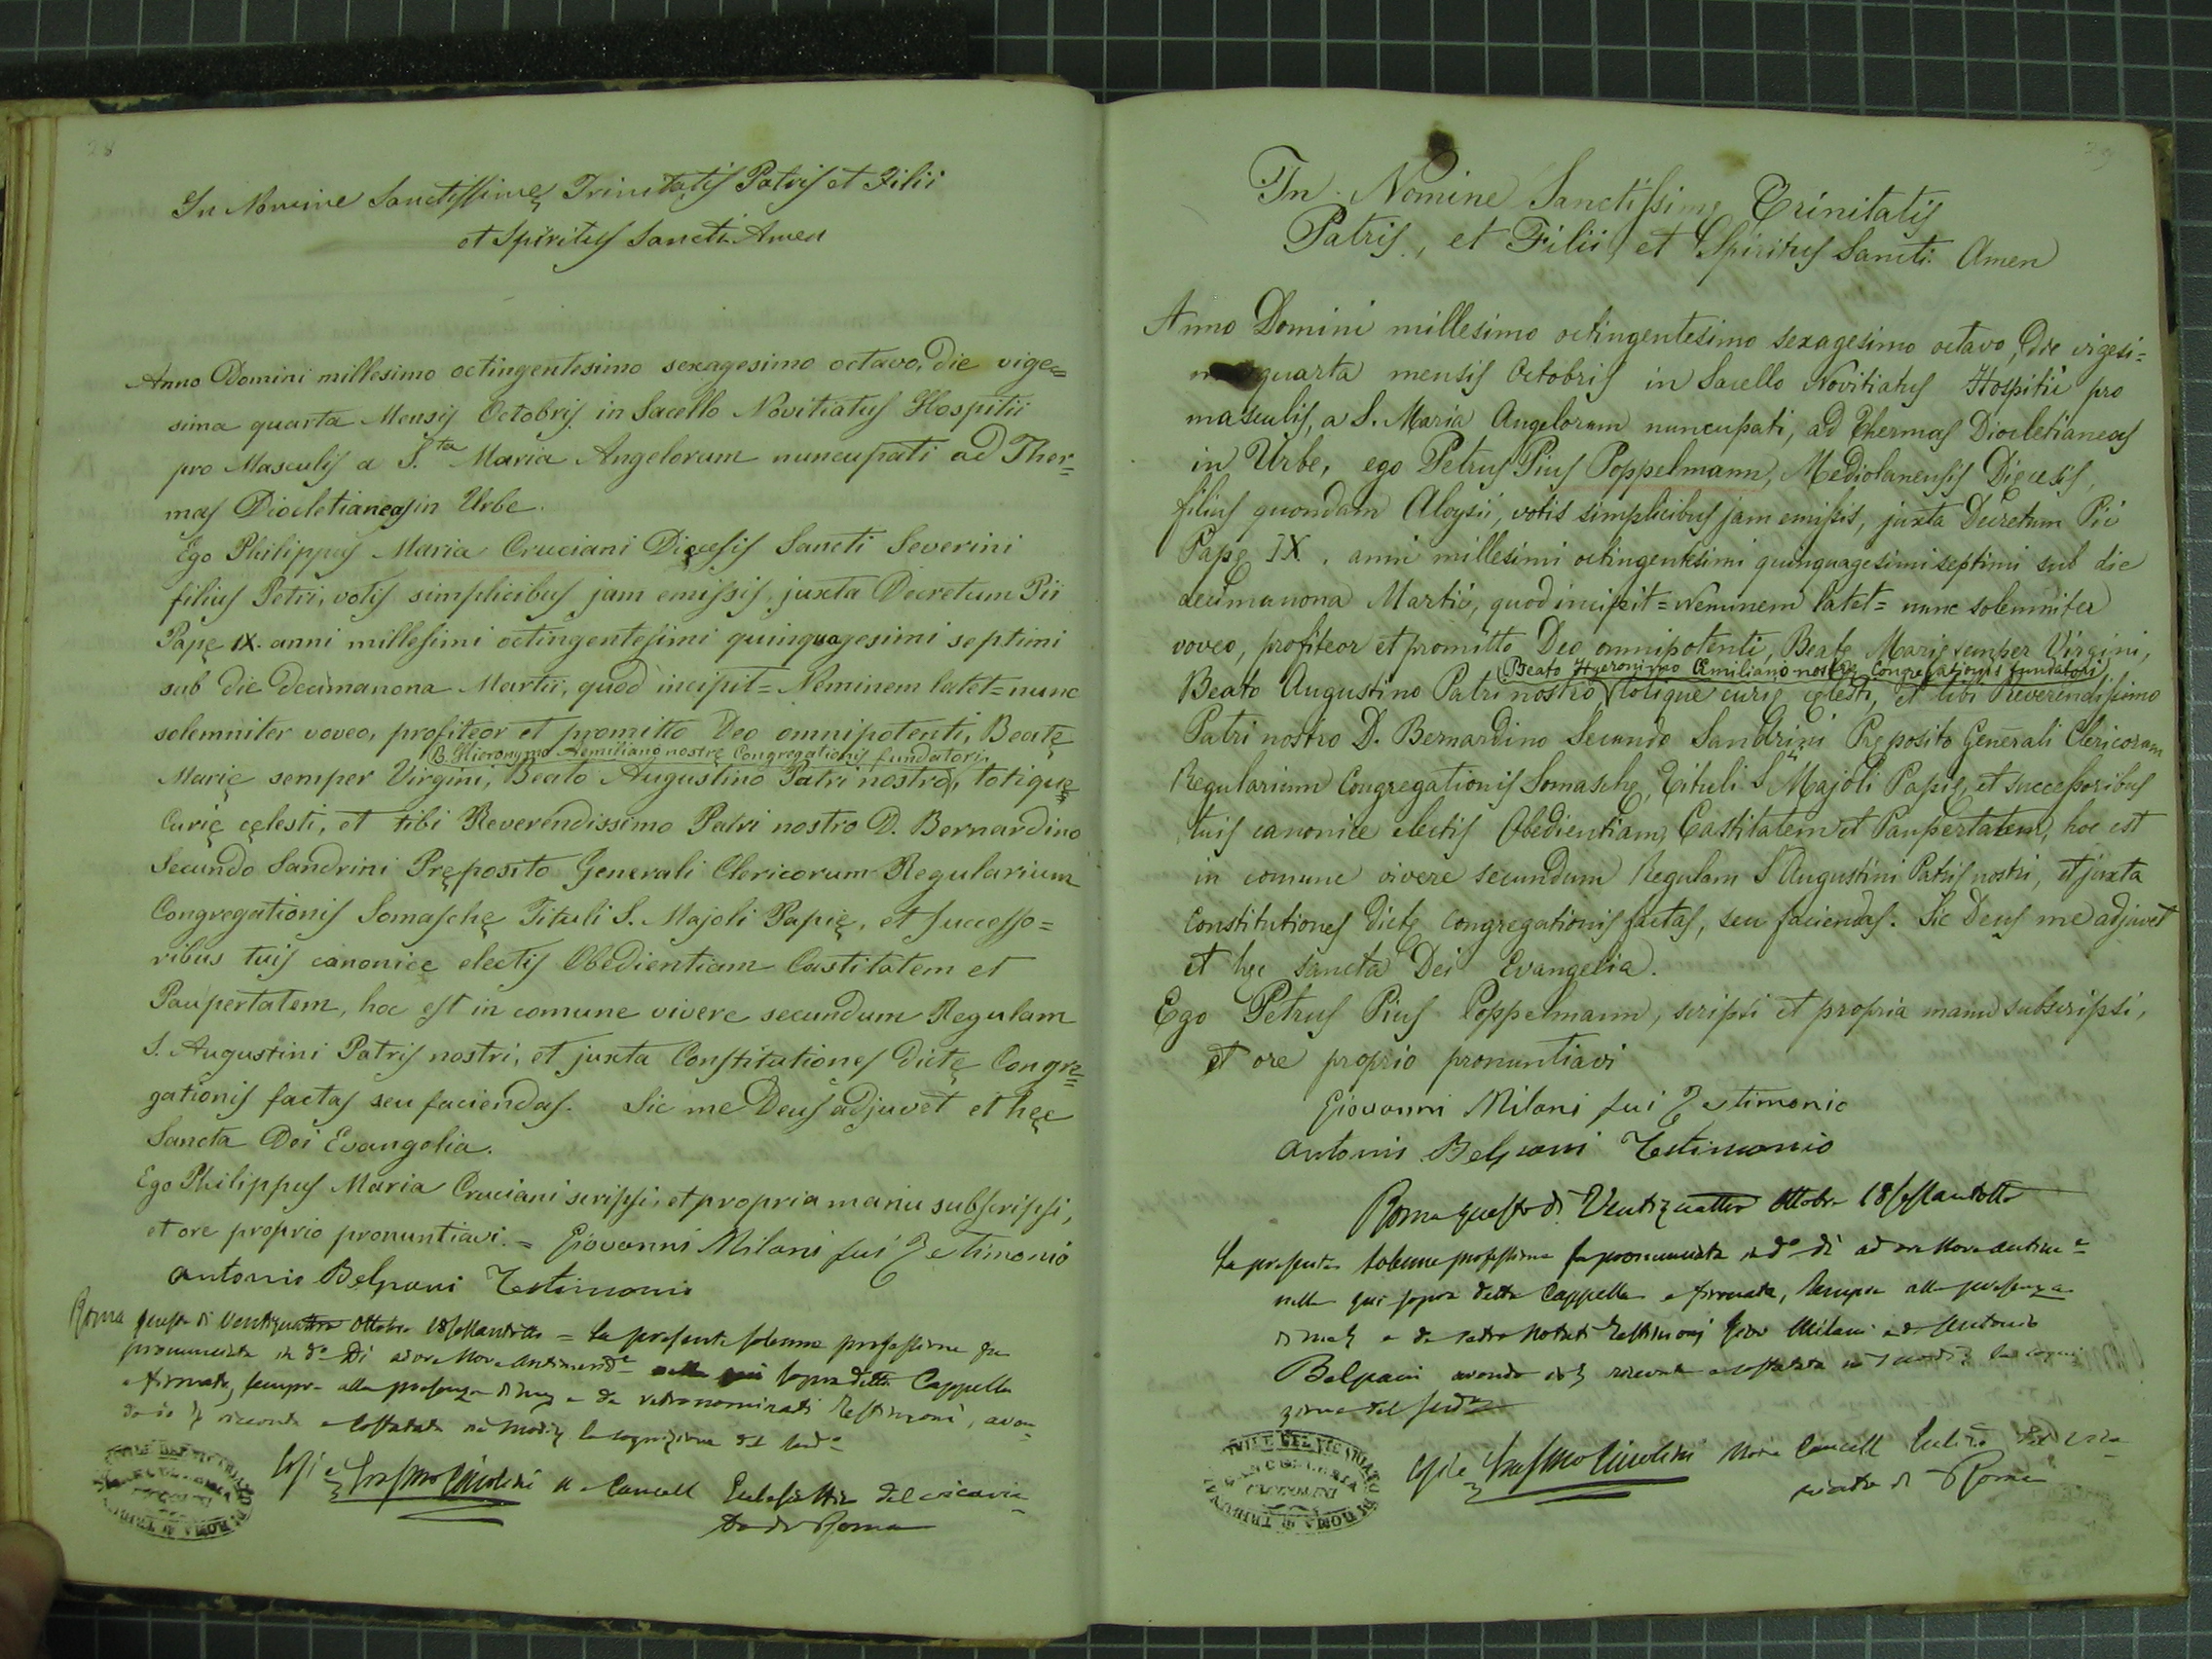 28
In Nomine Sanctissimę Trinitatis Patris et Filii
et Spiritus Sancti Amen
Anno Domini millesimo octingentesimo sexagesimo octavo, die vige=
sima quarta Mensis Octobris in Sacello Novitiatus Hospitii
pro Masculis a S.ta Maria Angelorum nuncupati ad Ther=
mas Diocletianeas in Urbe.
Ego Philippus Maria Cruciani Dięcesis Sancti Severini
filius Petri, votis simplicibus jam emissis, juxta Decretum Pii
Papę IX. anni millesimi octingentesimi quinquagesimi septimi
sub die decimanona Martii, quod incipit = Neminem latet = nunc
solemniter voveo, profiteor et promitto Deo omnipotenti, Beatę
B. Hieronymo Aemiliano nostrę Congregationis fundatori
Marię semper Virgini, Beato Augustino Patri nostro, totique
Curię cęlesti, et tibi Reverendissimo Patri nostro D. Bernardino
Secundo Sandrini Pręposito Generali Clericorum Regularium
Congregationis Somaschę Tituli S. Majoli Papię, et successo=
ribus tuis canonice electis Obedientiam Castitatem et
Paupertatem, hoc est in comune vivere secundum Regulam
S. Augustini Patris nostri, et juxta Constitutiones dictę Congre=
gationis factas seu faciendas. Sic me Deus adjuvet et hęc
Sancta Dei Evangelia.
Ego Philippus Maria Cruciani scripsi, et propria manu subscripsi,
et ore proprio pronuntiavi. = Giovanni Milani fui Testimonio
Antonio Belpani Testimonio
Roma questo di Ventiquattro Ottobre 18sessantotto = La presente solenne professione fu
pronunciata in do Di ad ore Nove antimeride sopra detta Cappella
e firmata, sempre alla presenza di me e da retronominati Testimoni, aven
do io ricevuta e la cognizione del
Cancell Ecclesiastico del Vicaria
to di Roma
In Nomine Sanctissimę Trinitatis
Patris, et Filii, et Spiritus Sancti Amen
Anno Domini millesimo octingentesimo sexagesimo octavo, die vigesi=
quarta mensis Octobris in Sacello Novitiatus Hospitii pro
masculis, a S. Maria Angelorum nuncupati, ad Thermas Diocletianeas
in Urbe, ego Petrus Pius Poppelmann, Mediolanensis Dięcesis,
filius quondam Aloysii, votis simplicibus jam emissis, juxta Decretum Pii
Papę IX. anni millesimi octingentesimi quinquagesimi septimi sub die
decimanona Martii, quod incipit = Neminem latet = nunc solemniter
voveo, profiteor et promitto Deo omnipotenti, Beatę Marię semper Virgini,
Beato Hyeronimo Emiliano nostrę Congregationis fundatori
Beato Augustino Patri nostro totique curię cęlesti, et tibi Reverendissimo
Patri nostro D. Bernardino Secundo Sandrini Pręposito Generali Clericorum
Regularium Congregationis Somaschę, Tituli S. Majoli Papię, et successoribus
tuis canonice electis Obedientiam, Castitatem et Paupertatem, hoc est
in comune vivere secundum Regulam S. Augustini Patris nostri, et juxta
Constitutiones dictę Congregationis factas, seu faciendas. Sic Deus me adjuvet
et hęc sancta Dei Evangelia.
Ego Petrus Pius Poppelmann, scripsi et propria manu subscripsi,
et ore proprio pronuntiavi
Giovanni Milani fui Testimonio
Antonio Belpani Testimonio
Roma questo di Ventiquattro Ottobre 18sessantotto
La presente solenne professione fu pronunciata in do di ad ore Nove antime=
nella qui sopra detta Cappella e firmata, sempre alla presenza
di me e da retro notati Testimoni Giov Milani ed Antonio
Belpani avendo io ricevuta
Cancell
riato di Roma